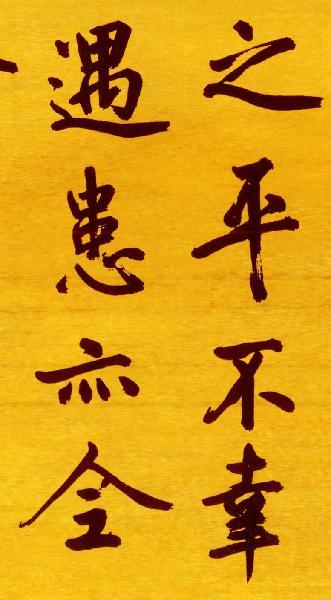 之平不幸
遇患亦全